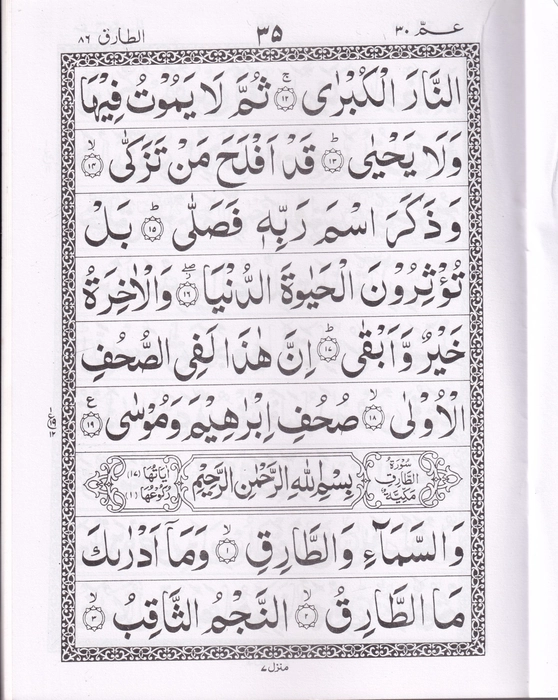 عـمّ ٣٠ ٣۵ الطارق ٨٦
النَّارَ الْكُبْرٰى ۚ ﴿١٢﴾ ثُمَّ لَا يَمُوْتُ فِيْهَا
وَلَا يَحْيٰى ؕ ﴿١٣﴾ قَدْ اَفْلَحَ مَنْ تَزَكّٰى ۙ ﴿١٤﴾
وَذَكَرَ اسْمَ رَبِّهٖ فَصَلّٰى ؕ ﴿١۵﴾ بَلْ
تُؤْثِرُوْنَ الْحَيٰوةَ الدُّنْيَا ۖ ﴿١٦﴾ وَالْاٰخِرَةُ
خَيْرٌ وَّاَبْقٰى ؕ ﴿١٧﴾ اِنَّ هٰذَا لَفِى الصُّحُفِ
الْاُوْلٰى ۙ ﴿١٨﴾ صُحُفِ اِبْرٰهِيْمَ وَمُوْسٰى ﴿١٩﴾ ع
سُوْرَةُ الطَّارِقِ مَكِّيَّةٌ بِسْمِ اللهِ الرَّحْمٰنِ الرَّحِيْمِ اٰيَاتُهَا (١٧) رُكُوْعُهَا (١)
وَالسَّمَآءِ وَالطَّارِقِ ۙ ﴿١﴾ وَمَاۤ اَدْرٰىكَ
مَا الطَّارِقُ ۙ ﴿٢﴾ النَّجْمُ الثَّاقِبُ ۙ ﴿٣﴾
منزل ٧